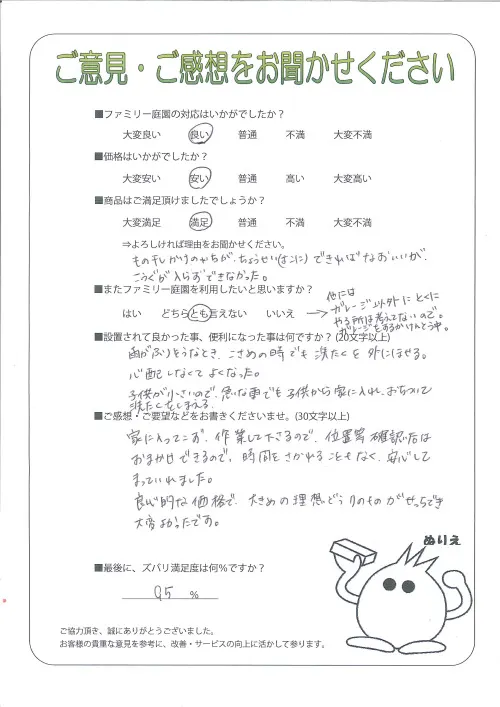 ご意見・ご感想をお聞かせください
■ファミリー庭園の対応はいかがでしたか？
大変良い 良い 普通 不満 大変不満
■価格はいかがでしたか？
大変安い 安い 普通 高い 大変高い
■商品はご満足頂けましたでしょうか？
大変満足 満足 普通 不満 大変不満
⇒よろしければ理由をお聞かせください。
もの干しかけのいちが、ちょうせい できればなおいいが、
こうぐが入らずできなかった。
■またファミリー庭園を利用したいと思いますか？
はい どちらとも言えない いいえ
他には
ガレージ以外にとくに
やる所は考えてないので。
ガレージをするかけんとう中。
■設置されて良かった事、便利になった事は何ですか？(20文字以上)
雨がふりそうなとき、こさめの時でも洗たくを外にほせる。
心配しなくてよくなった。
子供が小さいので、急な雨でも子供から家に入れ、おちついて
洗たくをしまえる。
■ご感想・ご要望などをお書きくださいませ。(30文字以上)
家に入ってこず、作業して下さるので、位置等確認后は
おまかせできるので、時間をさかれることもなく、安心して
まっていれました。
良心的な価格で、大きめの理想どうりのものが
大変よかったです。
ぬりえ
■最後に、ズバリ満足度は何％ですか？
95 %
ご協力頂き、誠にありがとうございました。
お客様の貴重な意見を参考に、改善・サービスの向上に活かして参ります。